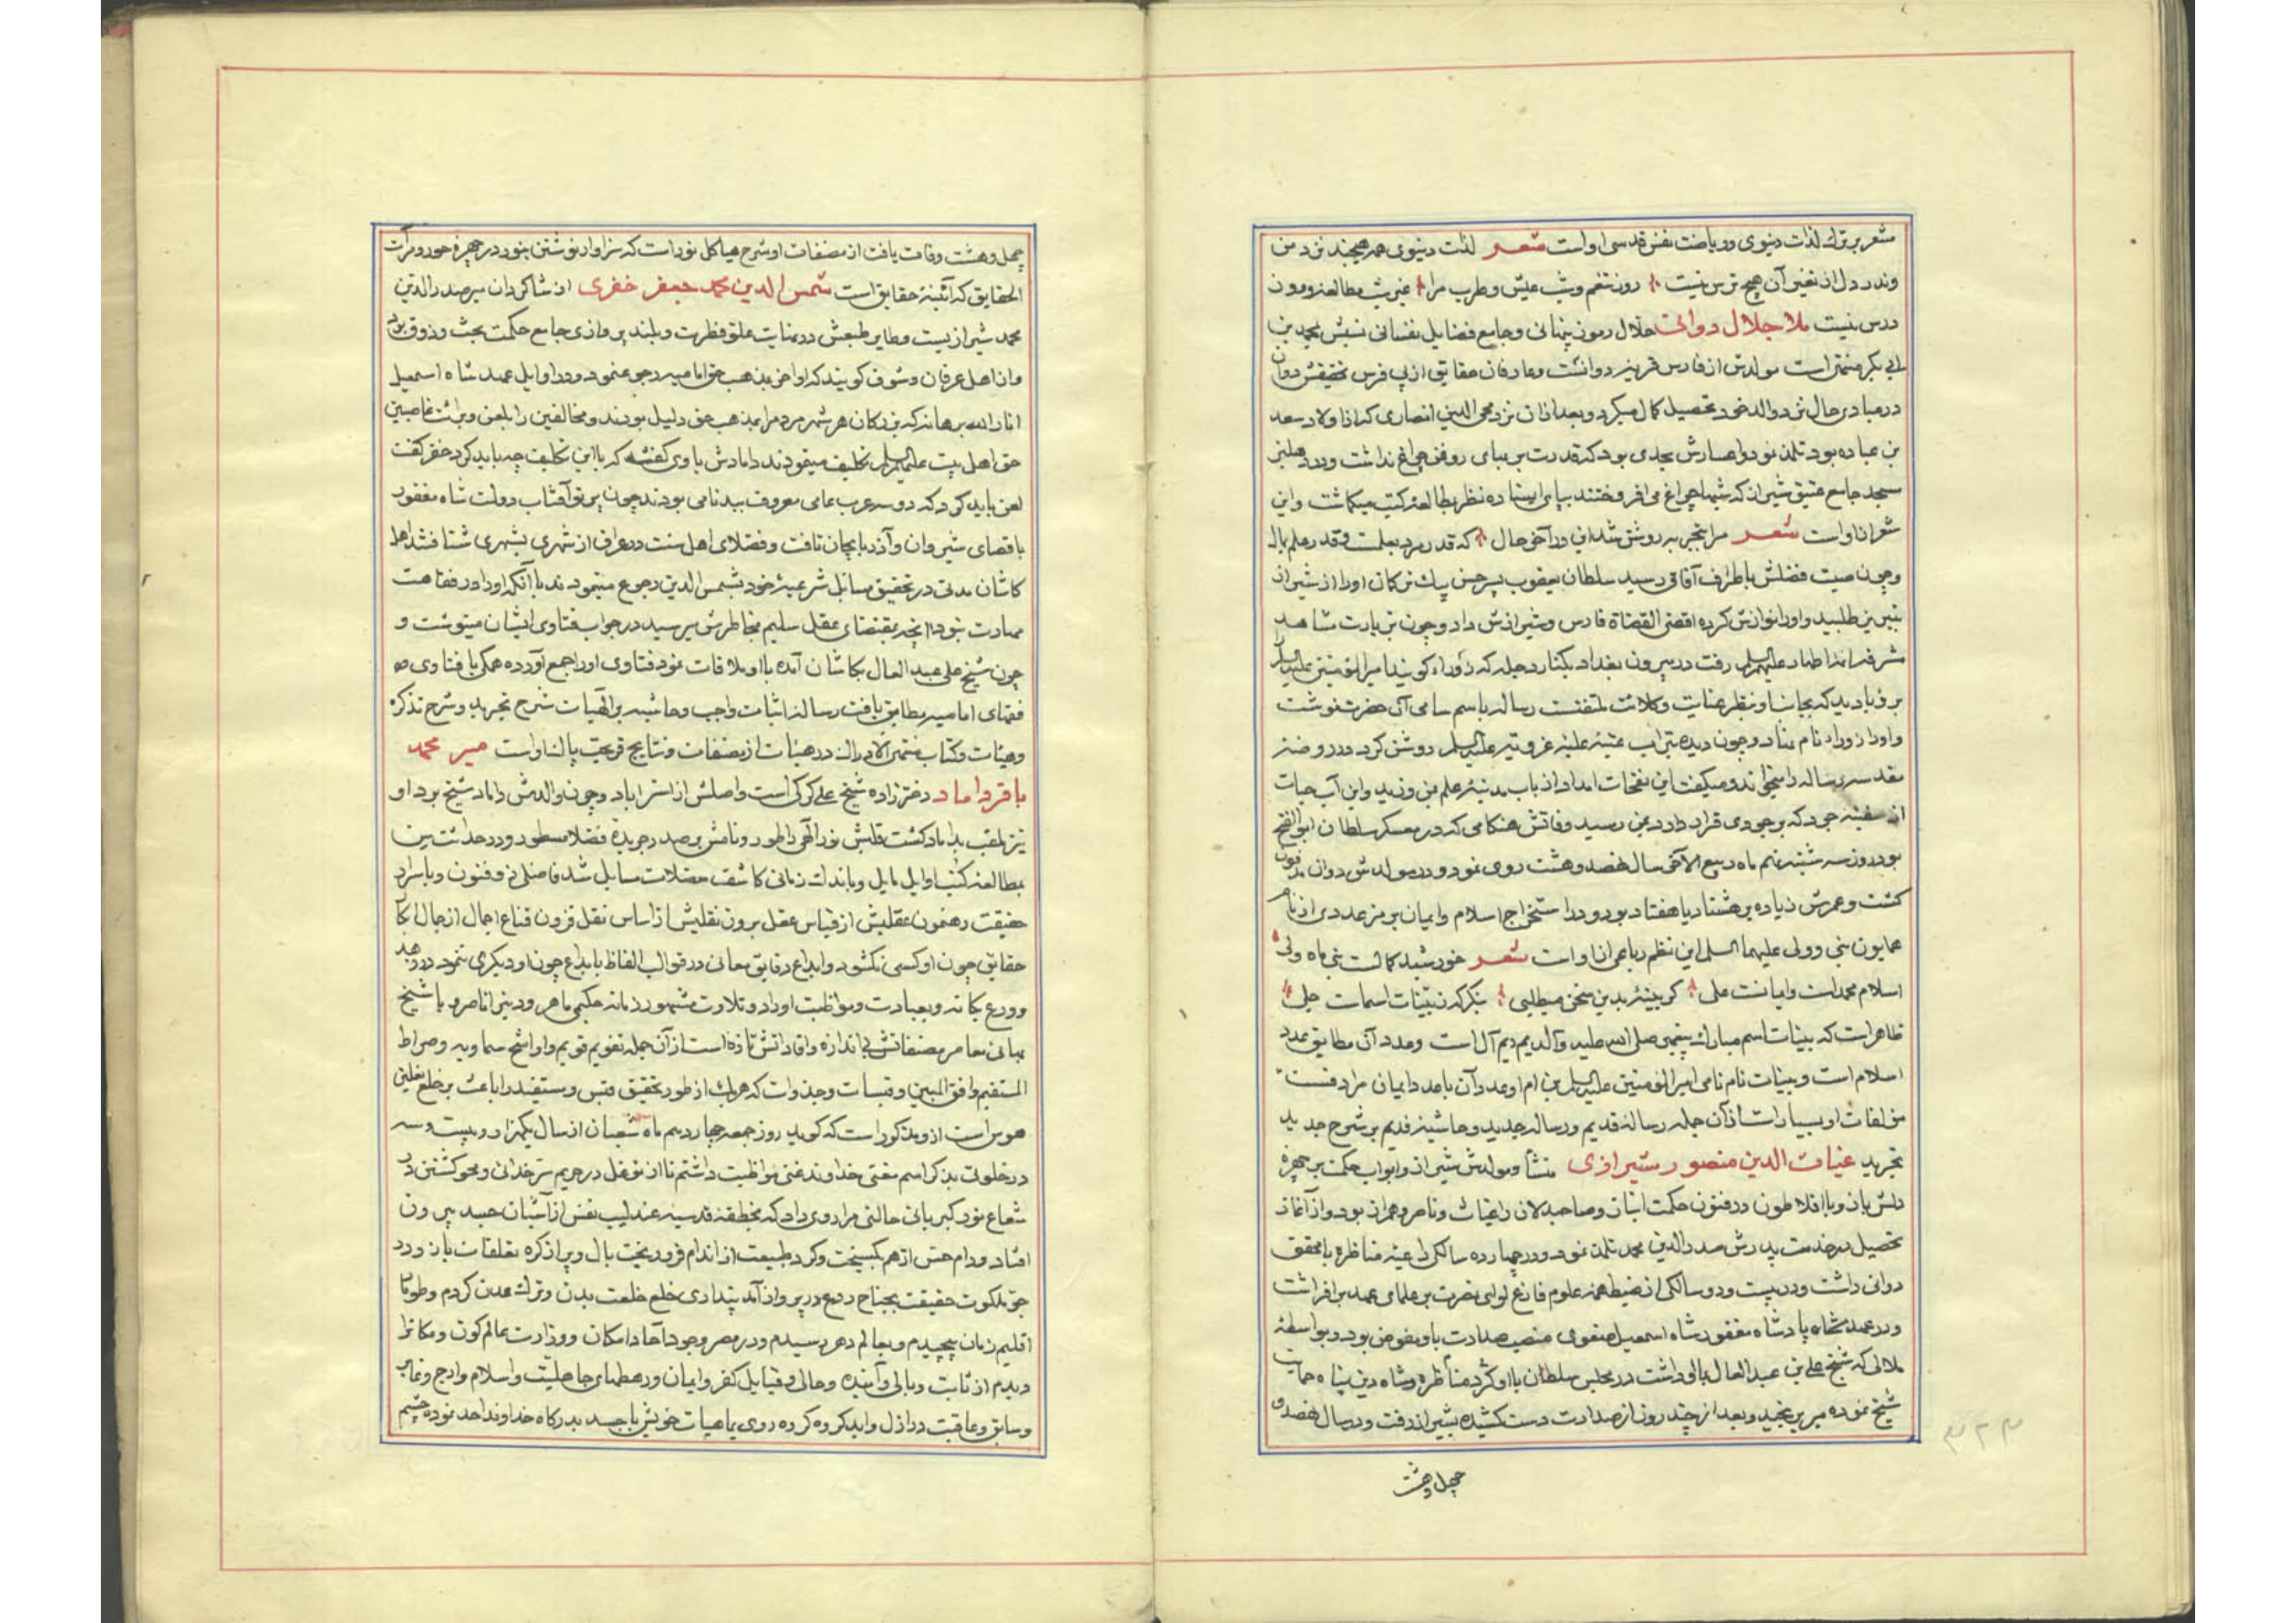 مشعر بر ترك لذات دنیوی و ریاضت نفس قدسی اواست شعر لذات دنیوی همه هیچند نزد من
وندر دل از تغیر آن هیچ ترس نیست روز تنعم و شب عیش و طرب مرا غیر شب مطالعه و روز
درس نیست ملا جلال دوانی حلال رموز پنهانی و جامع فضایل نفسانی نسبش بمحمد بن
ابی بکر منتهی است مولدش از فارس قریه دوانست و عارفان حقایق از پی فرس تحقیقش دوان
در مبادی حال نزد والد خود تحصیل کمال میکرد و بعد از ان نزد محی الدین انصاری که از اولاد سعد
بن عباده بود تلمذ نمود و اعسارش بحدی بود که قدرت بر بهای روغن چراغ نداشت و در دهلیز
مسجد جامع عتیق شیراز که شبها چراغ می افروختند بپای ایستاده نظر بمطالعه کتب میکماشت و این
شعر از اواست شعر مرا بتجربه روشن شد این در آخر حال که قدر مرد بعلمست و قدر علم بمال
و چون صیت فضلش باطراف آفاق رسید سلطان یعقوب پسر حسن بیك ترکمان او را از شیراز
بتبریز طلبید و او را نوازش کرده اقضی القضاة فارس و شیرازش داد و چون بزیارت مشاهد
مشرفه ائمه اطهار علیهم السلم رفت در بیرون بغداد بکنار دجله که زوراء کویند امیر المؤمنین علیه السلم را
برؤیا دید که بجانب او بنظر عنایت و کلائت ملتفتست رساله باسم سامی آن حضرت نوشت
و او را زوراء نام نهاد و چون دیده بتراب عتبه علیه غرویه علیه السلم روشن کرد در روضه
مقدسه رساله را میخواند و میکفت این نفحات امداد از باب مدینه علم می وزید و این آب حیات
از سفینه جود که بر جودی قرار دارد بمن رسید وفاتش هنکامی که در معسکر سلطان ابو الفتح
بود روز سه شنبه نهم ماه ربیع الآخر سال نهصد و هشت روی نمود و در مولدش دوان مدفون
کشت و عمرش زیاده بر هشتاد یا هفتاد بود و در استخراج اسلام و ایمان بر رمز عددی از نام
همایون نبی و ولی علیهما السلم این نظم رباعی از اواست شعر خورشید کمالست نبی ماه ولی
اسلام محمداست و ایمانست علی کر بینه بدین سخن میطلبی بنکر که زبینات اسماست جلی
ظاهر است که بینات اسم مبارك پیغمبر صلی الله علیه و آله یم ا یم ال است و عدد آن مطابق عدد
اسلام است و بینات نام نامی امیر المؤمنین علیه السلم ین ام ا و عدد آن با عدد ایمان مرادفست
مؤلفات او بسیار است از آن جمله رساله قدیم و رساله جدید و حاشیه قدیم بر شرح جدید
تجرید غیاث الدین منصور شیرازی منشأ و مولدش شیراز و ابواب حکمت بر چهره
دلش باز و با افلاطون در فنون حکمت انباز و صاحبدلان را غیاث و ناصر و همراز بود و از آغاز
تحصیل در خدمت پدرش صدر الدین محمد تلمذ نمود و در چهارده سالکی داعیه مناظره با محقق
دوانی داشت و در بیست و دو سالکی از ضبط همه علوم فارغ لوای نصرت بر علمای عهد بر افراشت
و در عهد شاه پادشاه مغفور شاه اسمعیل صفوی منصب صدارت باو مفوض بود و بواسطه
ملالی که شیخ علی بن عبد العال با او داشت در مجلس سلطان با او کرد مناظره و شاه دین پناه حمایت
شیخ نموده میر برنجید و بعد از چند روز از صدارت دست کشیده بشیراز رفت و در سال نهصد و
چهل و هشت
چهل و هشت وفات یافت از مصنفات او شرح هیاکل نور است که سزاوار نوشتن بنور در چهره حور و مرآت
الحقایق که آئینه حقایق است شمس الدین محمد جعفر خفری از شاکردان میر صدر الدین
محمد شیرازیست و طایر طبعش در نهایت علو فطرت و بلند پروازی جامع حکمت بحث و ذوق بود
و از اهل عرفان و شوق کویند که اواخر بمذهب حق امامیه رجوع نمود و در اوایل عهد شاه اسمعیل
انار الله برهانه که بزرکان هر شهر مردم را بمذهب حق دلیل بودند و مخالفین را بلعن و برائت غاصبین
حق اهل بیت علیهم السلم تکلیف مینمودند دامادش با وی کفت که با این تکلیف چه باید کرد خفری کفت
لعن باید کرد که دو سه عرب عامی معروف ببدنامی بودند چون پرتو آفتاب دولت شاه مغفور
باقصای شیروان و آذربایجان تافت و فضلای اهل سنت در عراق از شهری بشهری شتافتند اهل
کاشان مدتی در تحقیق مسایل شرعیه خود بشمس الدین رجوع مینمودند با آنکه او را در فقاهت
مهارت نبود انچه بمقتضای عقل سلیم بخاطرش میرسید در جواب فتاوی ایشان مینوشت و
چون شیخ علی عبد العال بکاشان آمده با او ملاقات نمود فتاوی او را جمع آورده همکی با فتاوی
فقهای امامیه مطابق یافت رساله اثبات واجب و حاشیه بر الهیات شرح تجرید و شرح تذکره
و هیئات و کتاب منتهی الادراك در هیئات از مصنفات و نتایج قریحت پاك اواست میر محمد
باقر داماد دختر زاده شیخ علی کرکی است و اصلش از استراباد و چون والدش داماد شیخ بود او
نیز ملقب بداماد کشت قلبش نور الهی را طور و نامش بر صدر جریده فضلا مسطور و در حداثت سن
بمطالعه کتب اوایل مایل و باندك زمانی کاشف معضلات مسایل شد فاضلی ذو فنون و باسرار
حقیقت رهنمون عقلیش از قیاس عقل برون نقلیش از اساس نقل فزون قناع اجمال از جمال ابکار
حقایق چون او کسی نکشود و ابداع دقایق معانی در قوالب الفاظ بابداع چون او دیکری ننمود در زهد
و ورع یکانه و بعبادت و مواظبت اوراد و تلاوت مشهور زمانه حکیمی ماهر و دین را ناصر و با شیخ
بهائی معاصر مصنفاتش بی اندازه و افاداتش تازه است از آن جمله تقویم قویم و رواشح سماویه و صراط
المستقیم و افق المبین و قبسات و جذوات که هر یك از طور تحقیق قبس و مستفید را باعث بر خلع نعلین
هوس است از وی مذکور است که کوید روز جمعه چهاردهم ماه شعبان از سال یکهزار و بیست و سه
در خلوتی بذکر اسم مغنی خداوند غنی مواظبت داشتم تا از توغل در حریم سر خدائی و محو کشتن در
شعاع نور کبریائی حالتی مرا روی داد که بخطفه قدسیه عندلیب نفس از آشیان جسد بیرون
افتاد و دام حس از هم بکسیخت و کرد طبیعت از اندام فرو ریخت بال و پر از کره تعلقات باز و در
جو ملکوت حقیقت بجناح روع در پرواز آمد پنداری خلع خلعت بدن و ترك عدن کردم و طومار
اقلیم زمان پیچیدم و بعالم دهر رسیدم و در مصر وجود آحاد امکان و وزارت عالم کون و مکانرا
دیدم از ثابت و بالی و آینده و حالی و قبایل کفر و ایمان و رهطهای جاهلیت و اسلام و ادج و غابر
و سابق و عاقبت در ازل و ابد کروه کروه روی با هیات خویش با جسد بدرکاه خداوند احد نموده چشم